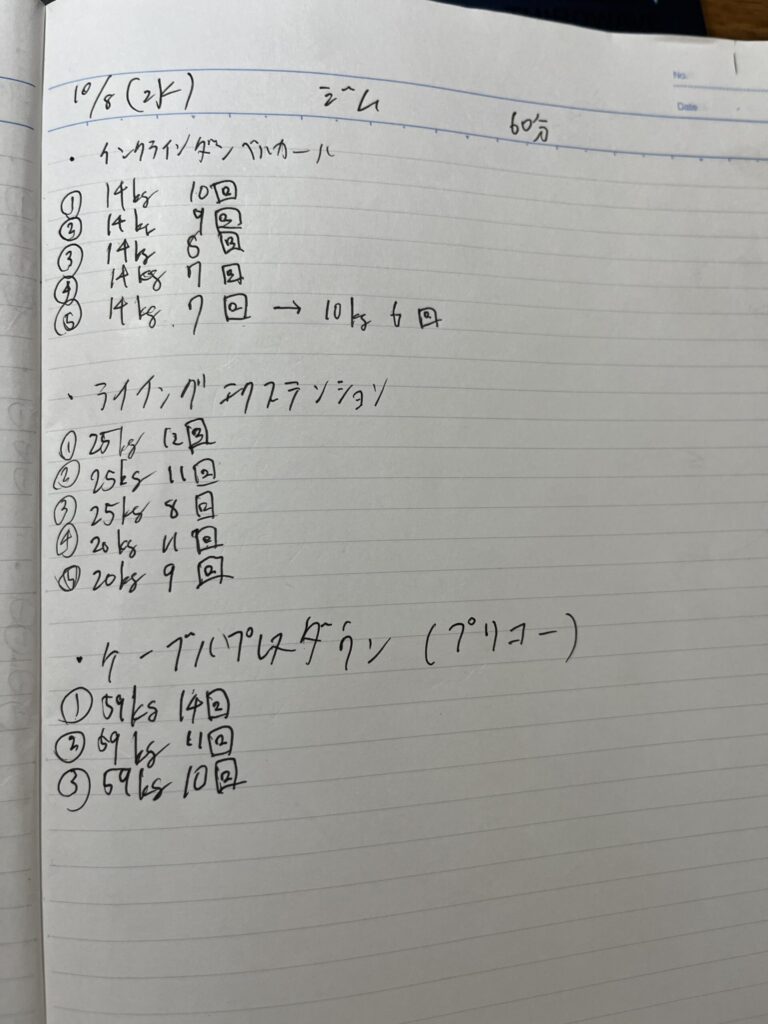 No.
Date
10/8(水) ジム 60分
・インクラインダンベルカール
① 14kg 10回
② 14kg 9回
③ 14kg 8回
④ 14kg 7回
⑤ 14kg 7回 → 10kg 6回
・ライイングエクステンション
① 25kg 12回
② 25kg 11回
③ 25kg 8回
④ 20kg 11回
⑤ 20kg 9回
・ケーブルプレスダウン(プリコー)
① 59kg 14回
② 59kg 11回
③ 59kg 10回